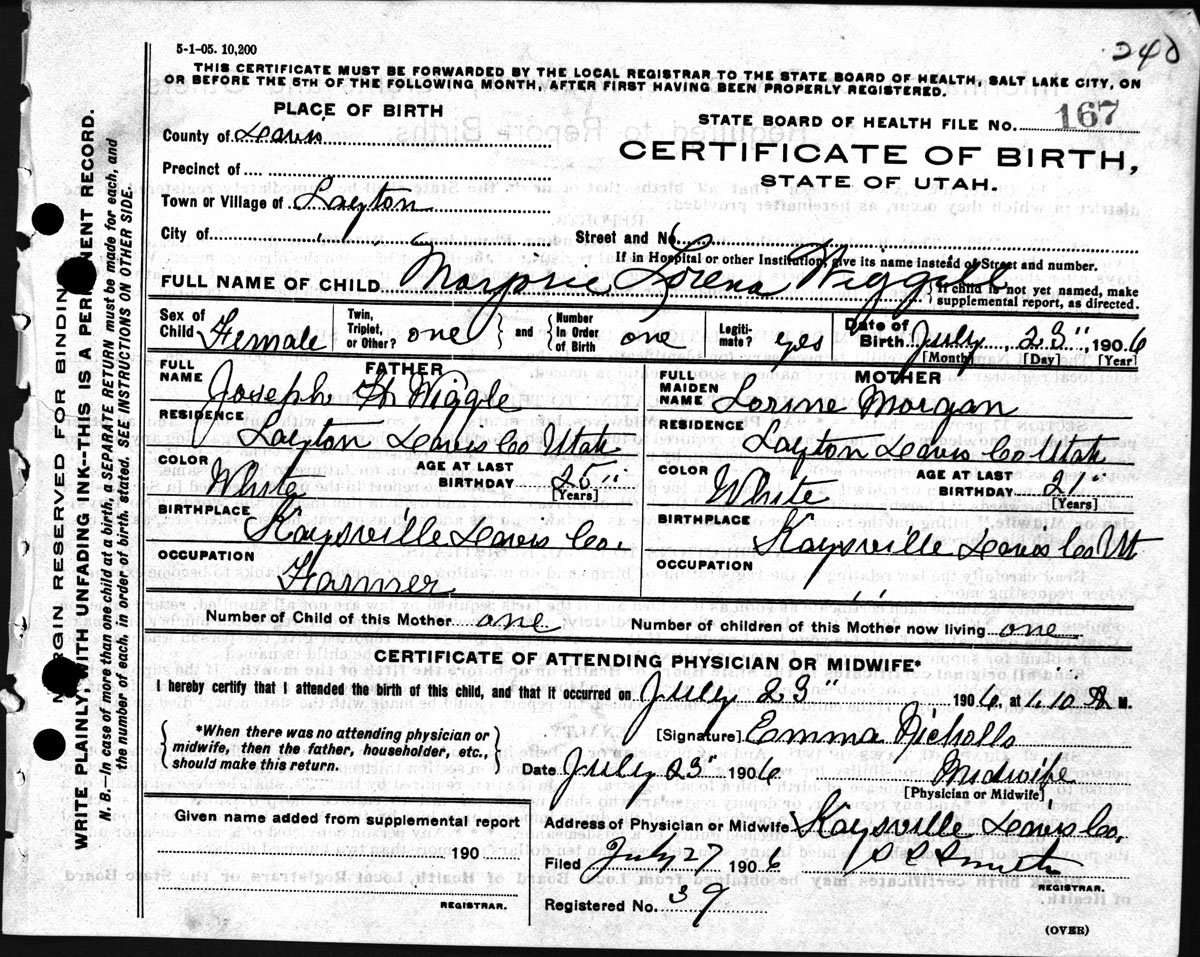 240
5-1-05. 10,200
THIS CERTIFICATE MUST BE FORWARDED BY THE LOCAL REGISTRAR TO THE STATE BOARD OF HEALTH, SALT LAKE CITY, ON
OR BEFORE THE 5TH OF THE FOLLOWING MONTH, AFTER FIRST HAVING BEEN PROPERLY REGISTERED.
PLACE OF BIRTH
STATE BOARD OF HEALTH FILE No. 167
County of Davis
CERTIFICATE OF BIRTH,
Precinct of
STATE OF UTAH.
Town or Village of Layton
City of " Street and No.
If in Hospital or other Institution, give its name instead of Street and number.
FULL NAME OF CHILD Marjorie Lorena Wiggill { If child is not yet named, make
supplemental report, as directed.
Sex of Child Female Twin, Triplet, or Other? one { and } Number In Order of Birth one Legiti- mate? yes Date of Birth July 23", 1906
[Month] [Day] [Year]
FATHER
FULL NAME Joseph H Wiggle
RESIDENCE
Layton Davis Co Utah
COLOR White AGE AT LAST BIRTHDAY 25"
[Years]
BIRTHPLACE
Kaysville Davis Co.
OCCUPATION
Farmer
MOTHER
FULL MAIDEN NAME Lorine Morgan
RESIDENCE
Layton Davis Co Utah
COLOR White AGE AT LAST BIRTHDAY 21"
[Years]
BIRTHPLACE
Kaysville Davis Co Ut
OCCUPATION
Number of Child of this Mother one Number of children of this Mother now living one
CERTIFICATE OF ATTENDING PHYSICIAN OR MIDWIFE*
I hereby certify that I attended the birth of this child, and that it occurred on July 23" 1906, at 1.10 A M.
{ *When there was no attending physician or
midwife, then the father, householder, etc.,
should make this return. }
[Signature] Emma Nicholls
Date July 23" 1906 Midwife
[Physician or Midwife]
Given name added from supplemental report
190
REGISTRAR.
Address of Physician or Midwife Kaysville Davis Co.
Filed July 27 1906 Smith
REGISTRAR.
Registered No. 39
(OVER)
MARGIN RESERVED FOR BINDING
WRITE PLAINLY, WITH UNFADING INK--THIS IS A PERMANENT RECORD.
N. B.—In case of more than one child at a birth, a SEPARATE RETURN must be made for each, and
the number of each, in order of birth, stated. SEE INSTRUCTIONS ON OTHER SIDE.